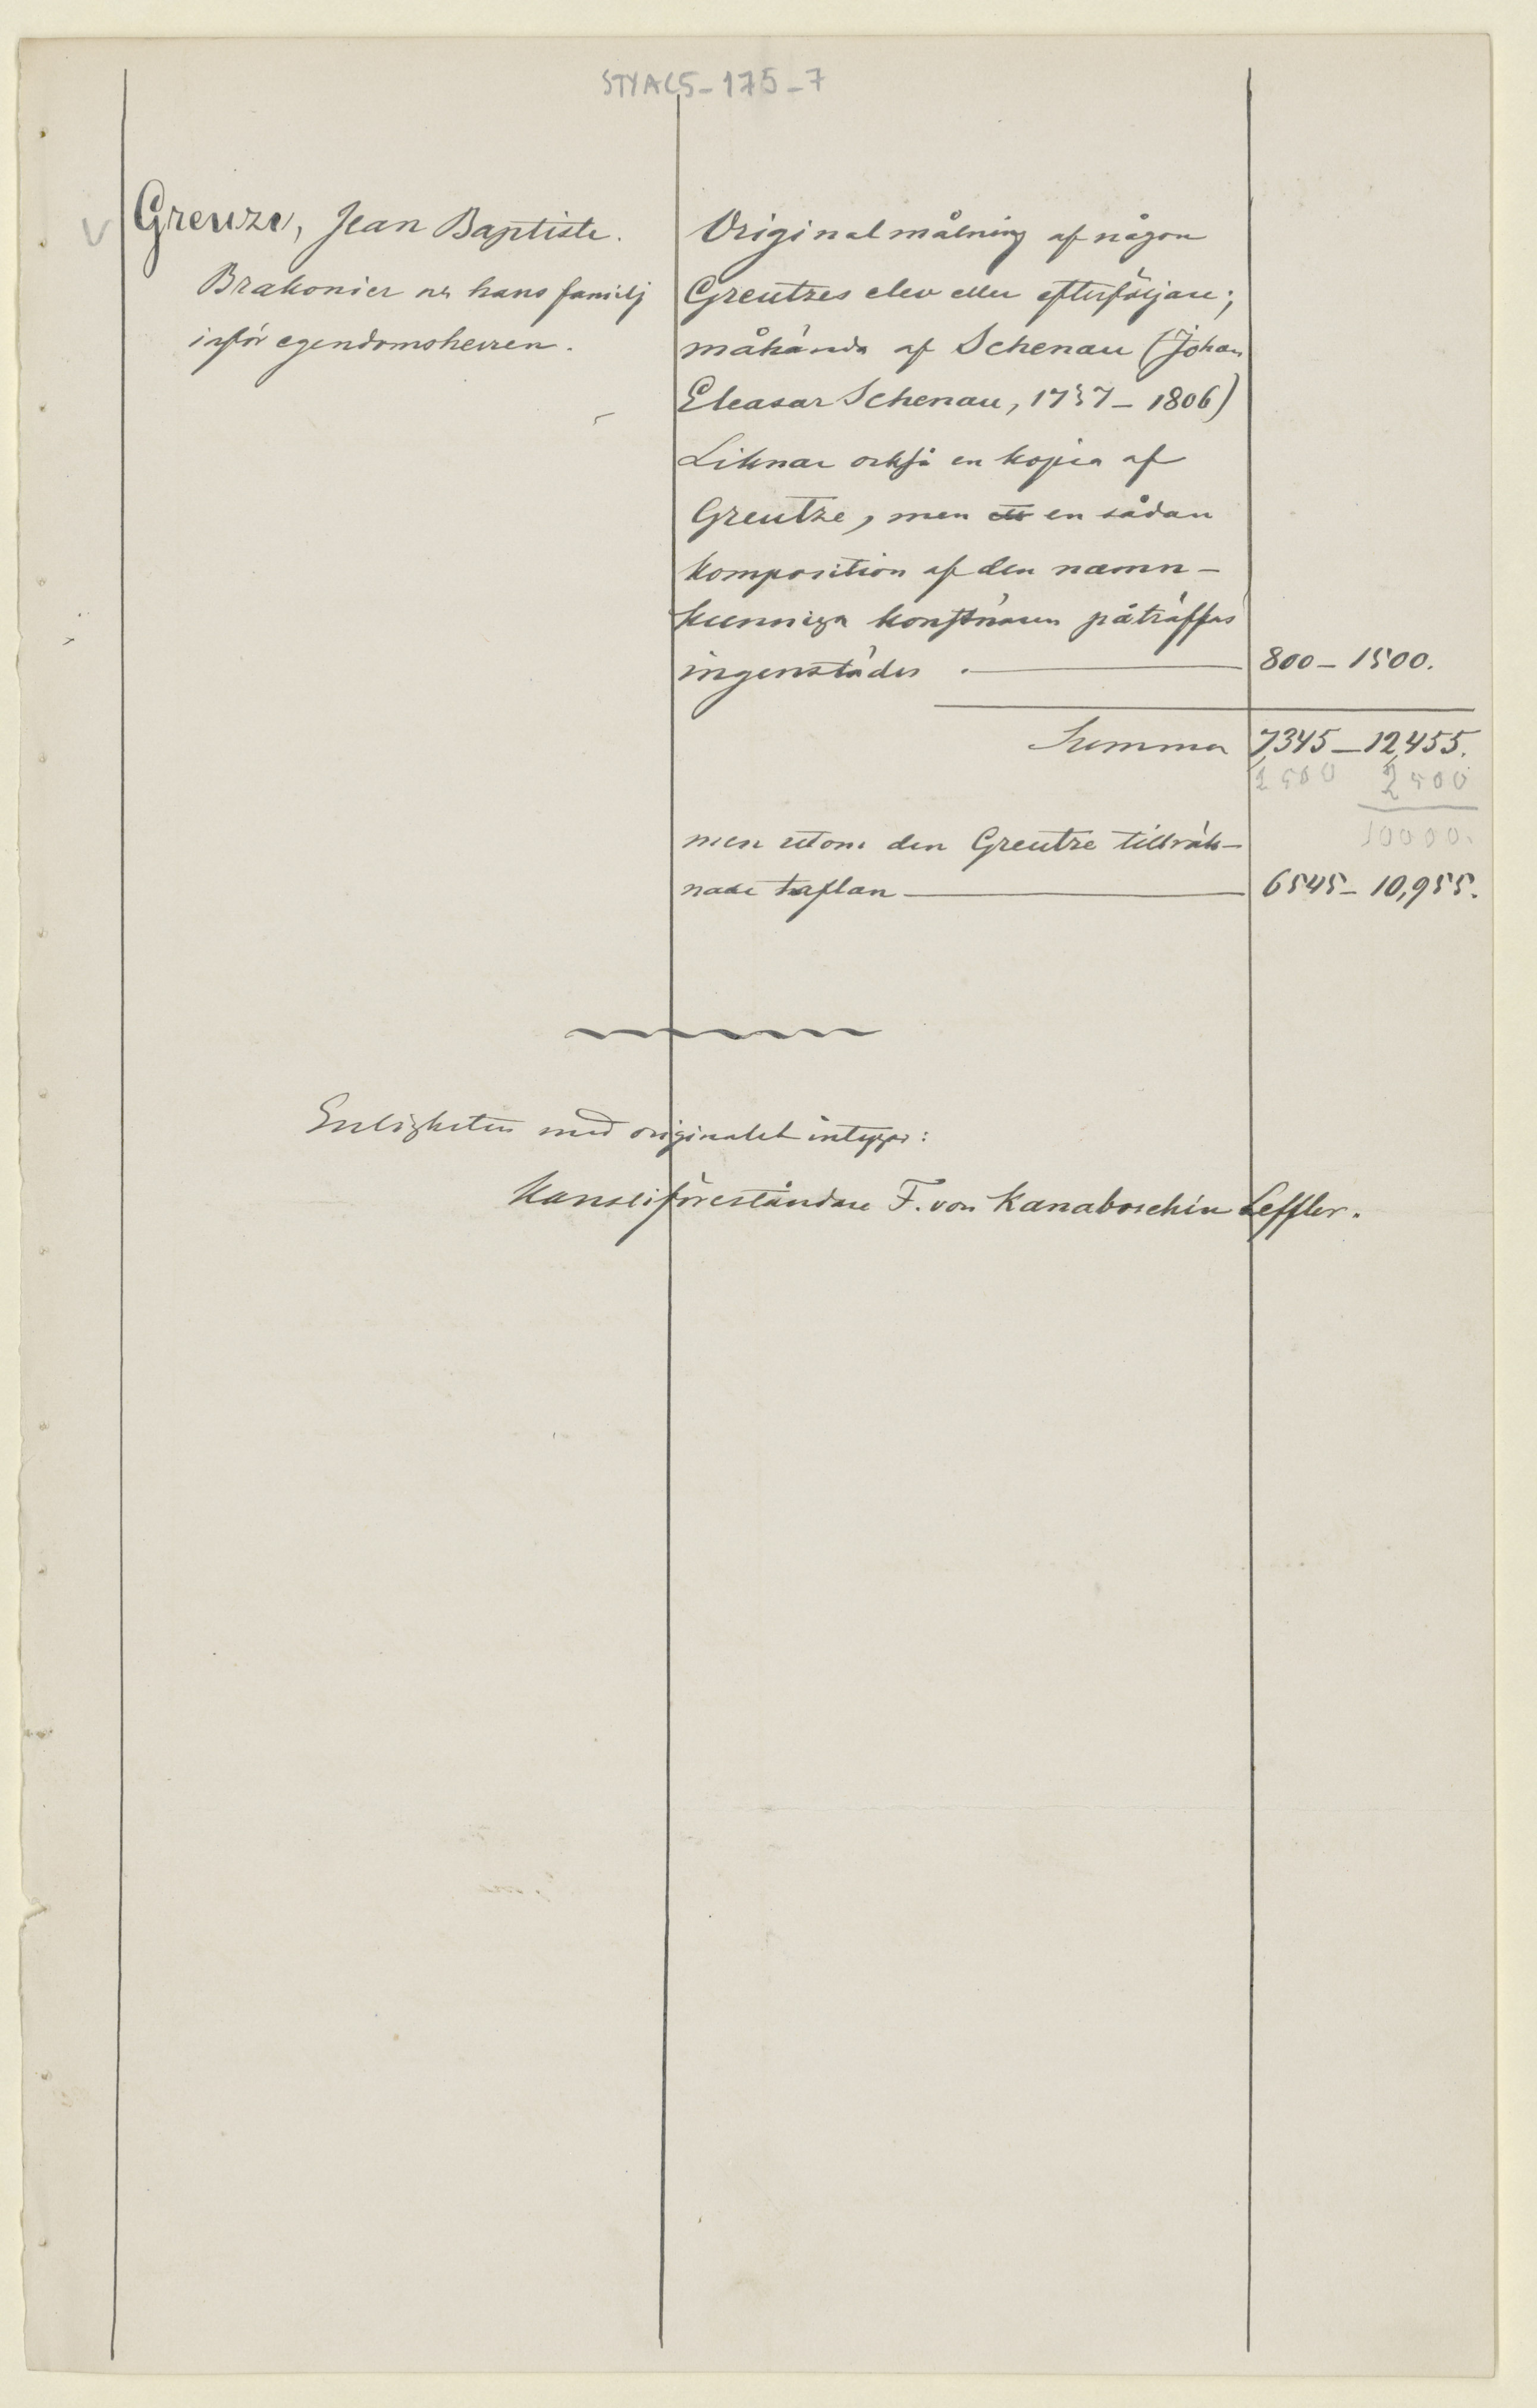 STYAC5-175-7
V Greuze, Jean Baptiste.
Brakonier och hans familj
inför egendomsherren.
Originalmålning af någon
Greutzes elev eller efterföljare;
måhända af Schenau (Johan
Eleasar Schenau, 1737-1806)
Liknar också en kopia af
Greutze, men en sådan
komposition af den namn-
kunniga konstnären påträffas
ingenstädes. — 800-1500.
Summa 7345-12,455.
2500 2500
10000.
men utom den Greutze tillräk-
nade taflan — 6545-10,955.
Enligheten med originalet intygar:
Kansliföreståndare F. von Kanaboschin Leffler.